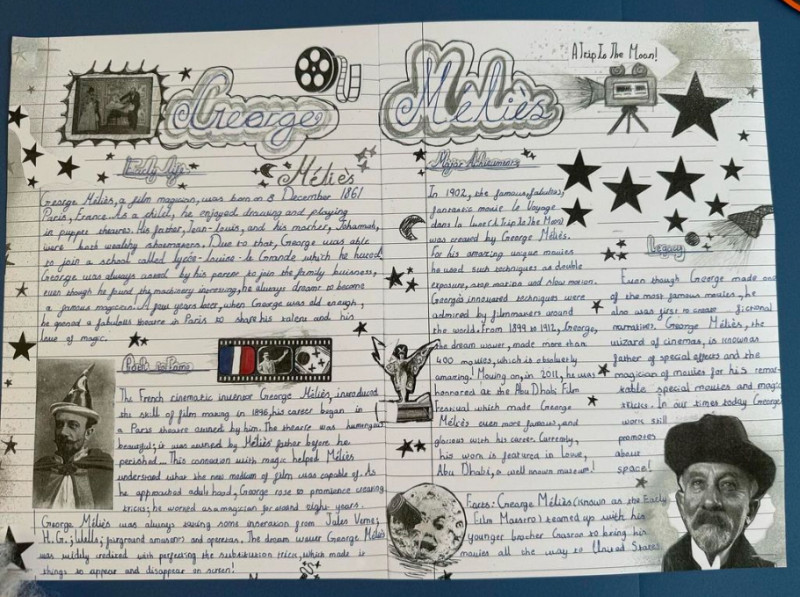 George
Méliès
Early Life
George Méliès, a film magician, was born on 8 December 1861
Paris, France. As a child, he enjoyed drawing and playing
in puppet theatres. His father, Jean-Louis, and his mother,
were both wealthy shoemakers. Due to that, George was able
to join a school called Lycée-Louise-le Grande which he
George was always asked by his parents to join the family buisness,
even though he found the machinery interesting, he always dreamt to become
a famous magician! A few years later, when George was old enough,
he opened a fabulous theatre in Paris to share his talent and his
love of magic.
Path to Fame
The French cinematic inventor George Méliès, introduced
the skill of film making in 1896, his career began in
a Paris theatre owned by him. The theatre was
beautiful; it was owned by Méliès father before he
perished... This connection with magic helped Méliès
understand what the new medium of film was capable of. As
he approached adulthood, George rose to prominence creating
tricks; he worked as a magician for around eight years.
George Méliès was always taking some from Jules Verne;
H.G.; Wells; fairground amusers and operettas. The dream weaver George Méliès
was widely credited with perfecting the substitution trick, which made
things to appear and disappear on screen!
Méliès
A Trip To The Moon!
Major Achievements
In 1902, the famous, fabulous,
fantastic movie Le Voyage
dans la Lune (A Trip To The Moon)
was created by George Méliès.
For his amazing unique movies
he used such techniques as double
exposure, stop motion and slow motion.
Georges innovated techniques were
admired by filmmakers around
the world. From 1899 to 1912, George,
the dream waver, made more than
400 movies, which is absolutely
amazing! Moving on, in 2011, he was
honoured at the Abu Dhabi Film
Festival which made George
Méliès even more famous, and
glorious with his career. Currently,
his work is featured in Louvre,
Abu Dhabi, a well known museum!
Legacy
Even though George made one
of the most famous movies, he
also was first to create fictional
narration. George Méliès, the
wizard of cinemas, is known as
father of special effects and the
magician of movies for his remar-
kable special movies and magic
tricks. In our times today George
work still
promotes
about
space!
Facts: George Méliès (known as the Early
Film Maestro) teamed up with his
younger brother Gaston to bring his
movies all the way to United States